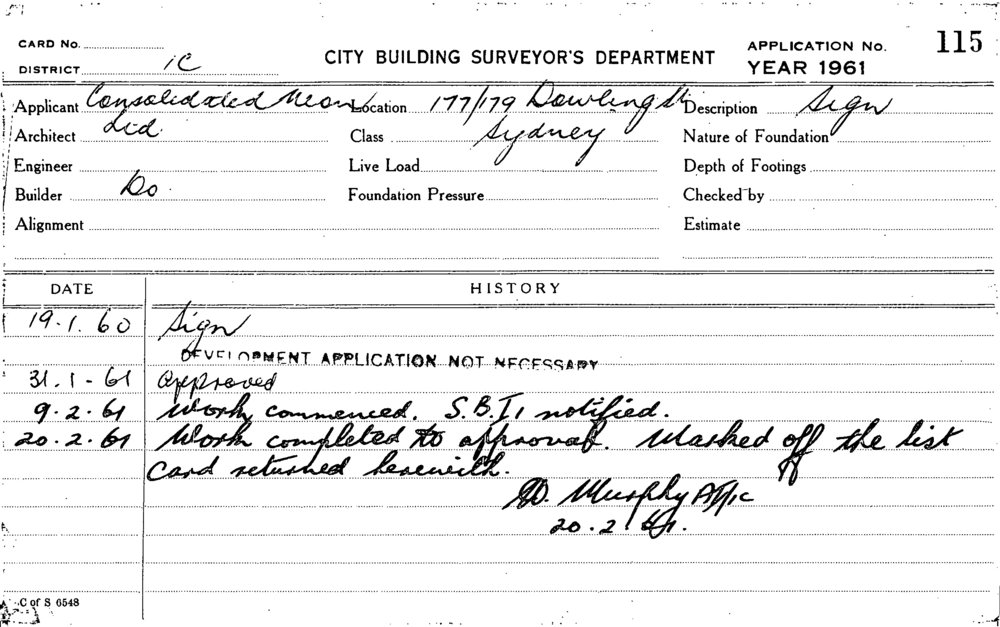 CARD No.
DISTRICT 1C
CITY BUILDING SURVEYOR'S DEPARTMENT
APPLICATION No. 115
YEAR 1961
Applicant Consolidated Neon Location 177/179 Dowling St Description Sign
Architect Ltd. Class Sydney Nature of Foundation
Engineer Live Load Depth of Footings
Builder Do. Foundation Pressure Checked by
Alignment Estimate
DATE HISTORY
19.1.60 Sign
DEVELOPMENT APPLICATION NOT NECESSARY
31.1-61 Approved
9.2.61 Work commenced. S.B.I. notified.
20.2.61 Work completed to approval. Marked off the list
Card returned herewith.
Murphy
20.2.61.
C of S 6548